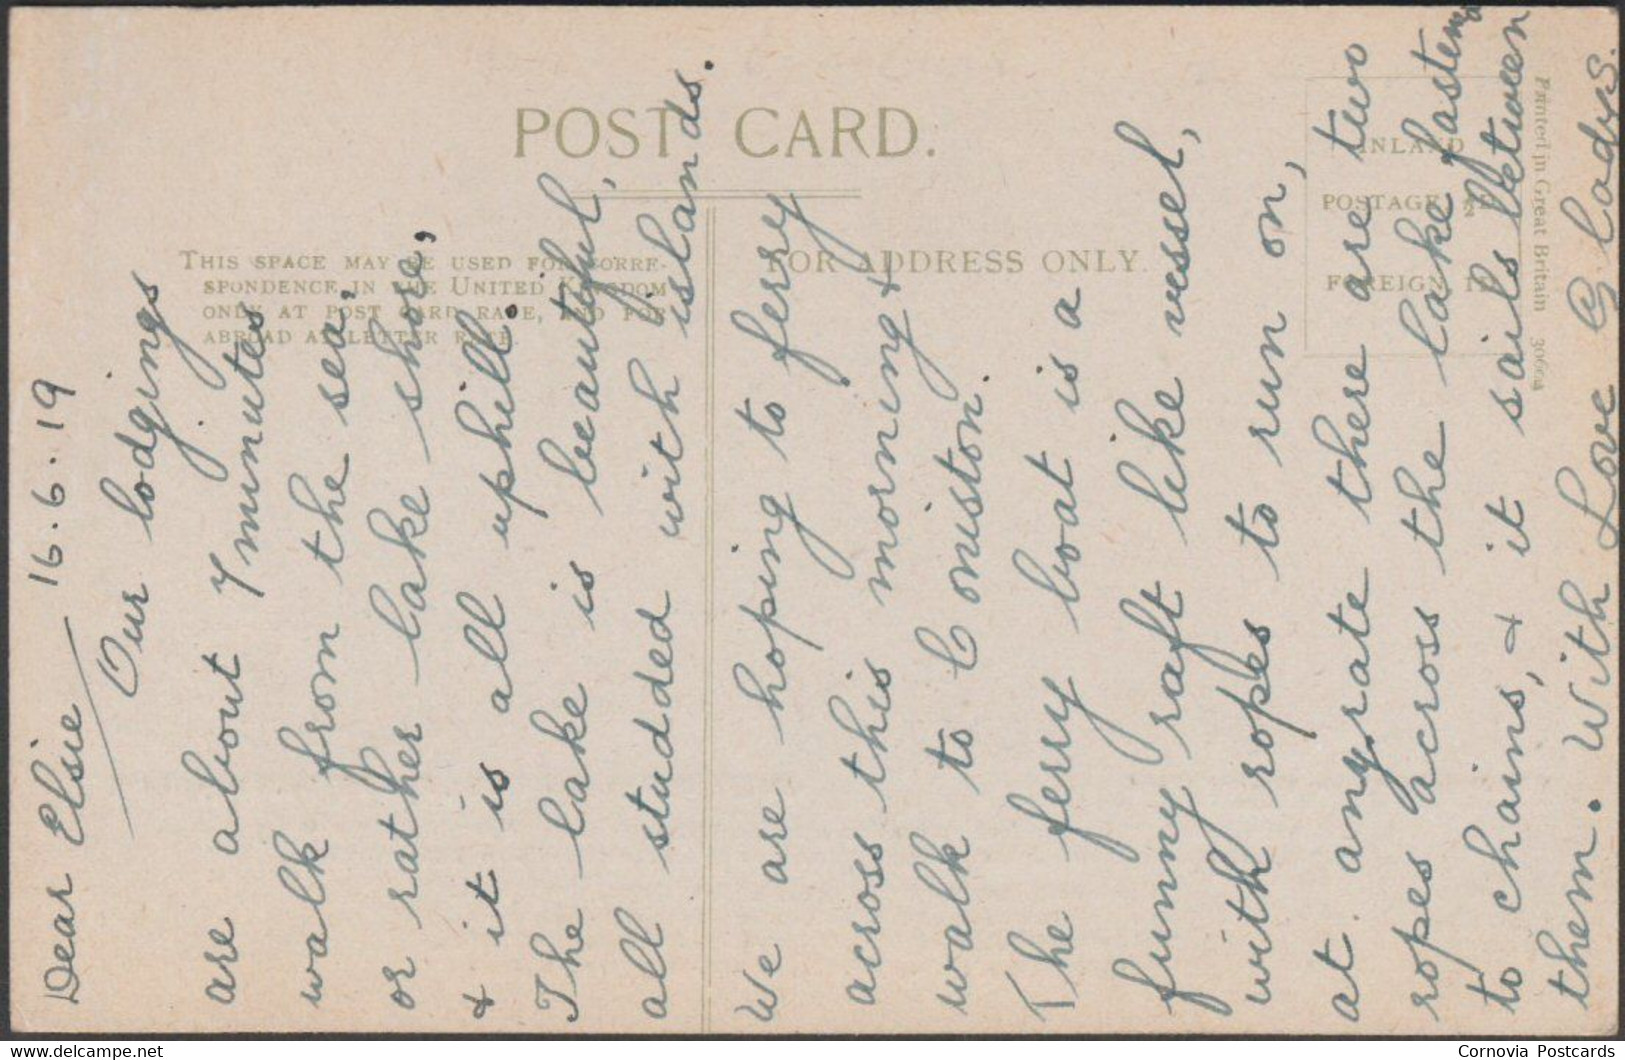 Dear Elsie 16.6.19
Our lodgings
are about 7 minutes'
walk from the sea,
or rather lake shore,
& it is all uphill.
The lake is beautiful,
all studded with islands.
We are hoping to ferry
across this morning &
walk to Coniston.
The ferry boat is a
funny raft like vessel,
with ropes to run on,
at anyrate there are two
ropes across the lake fastened
to chains, & it sails between
them. With Love Gladys.
POST CARD.
THIS SPACE MAY BE USED FOR CORRE-
SPONDENCE IN THE UNITED KINGDOM
ONLY AT POST CARD RATE, AND FOR
ABROAD AT LETTER RATE.
FOR ADDRESS ONLY.
INLAND
POSTAGE ½D.
FOREIGN 1D.
Printed in Great Britain 30660A
Cornovia Postcards
www.delcampe.net